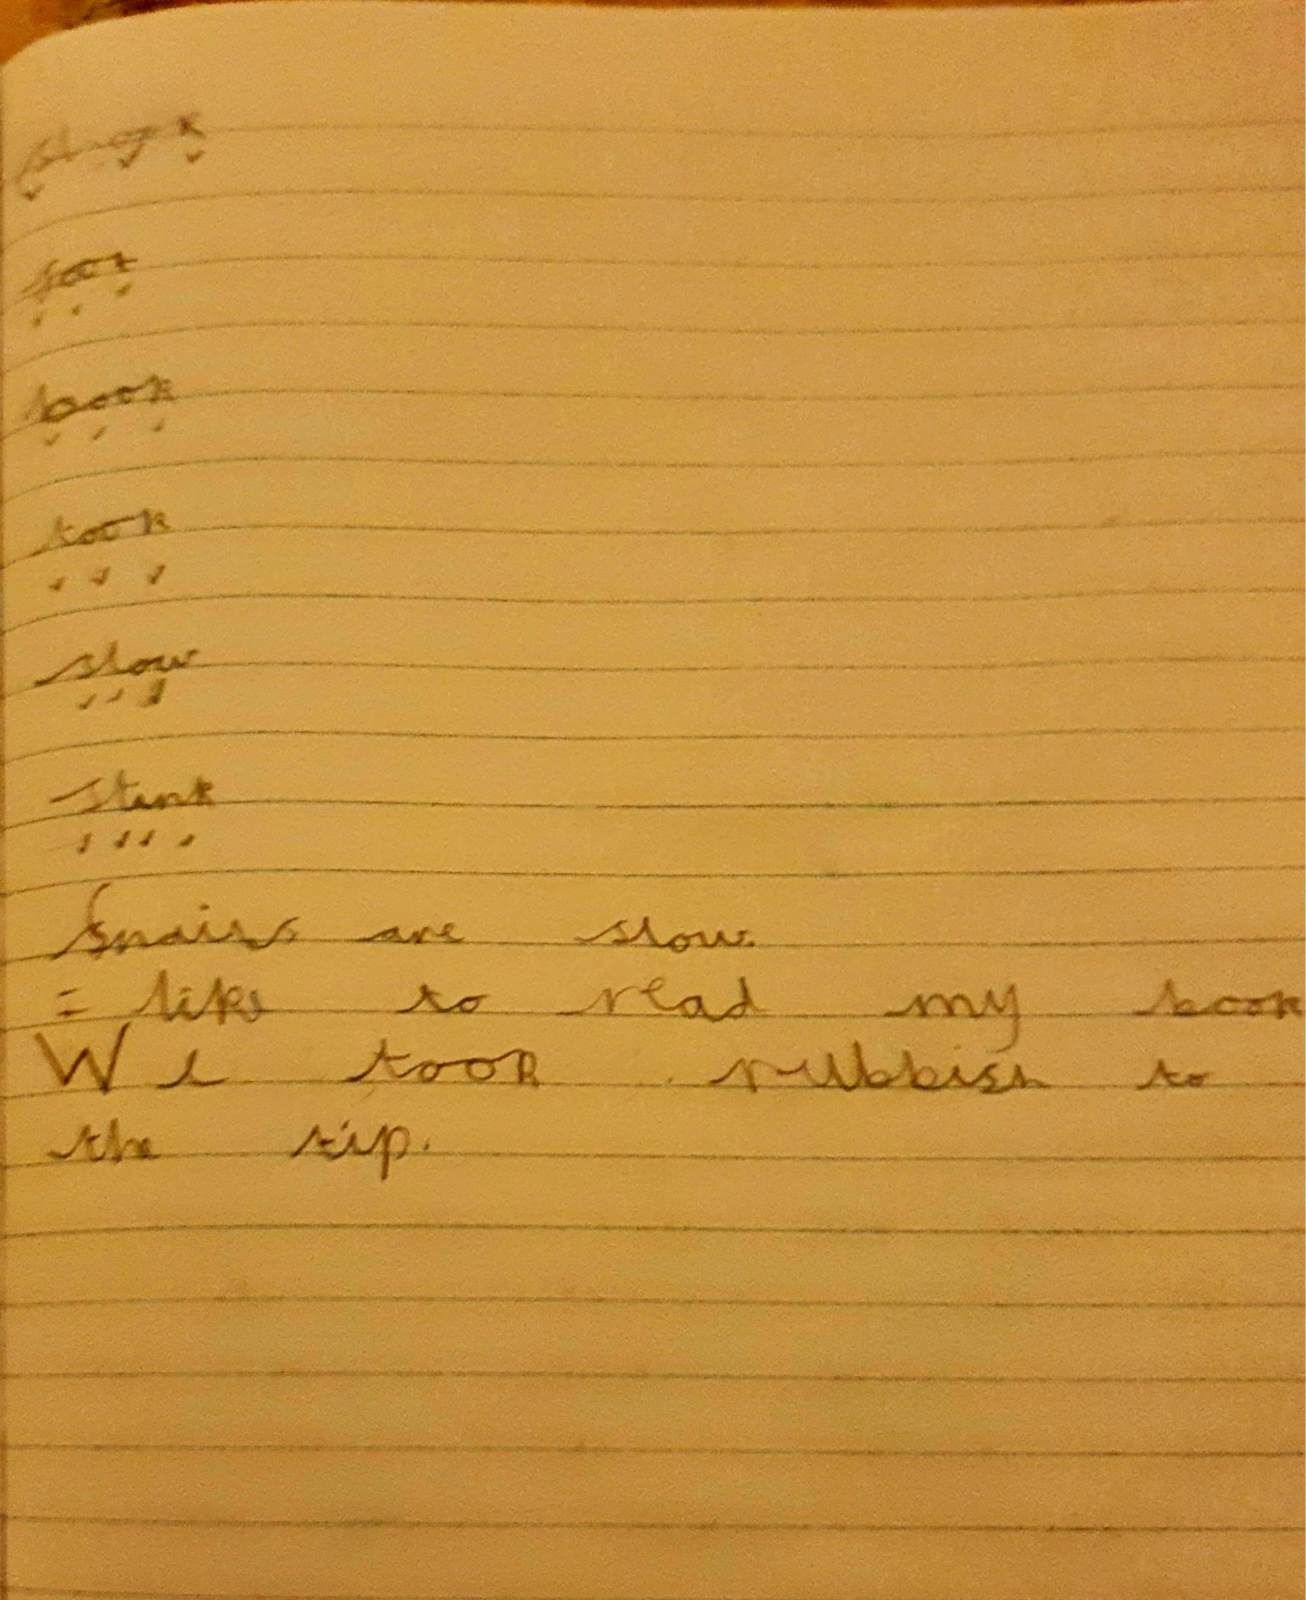 book
took
slow
stink
Snails are slow.
I like to read my book
We took rubbish to
the tip.